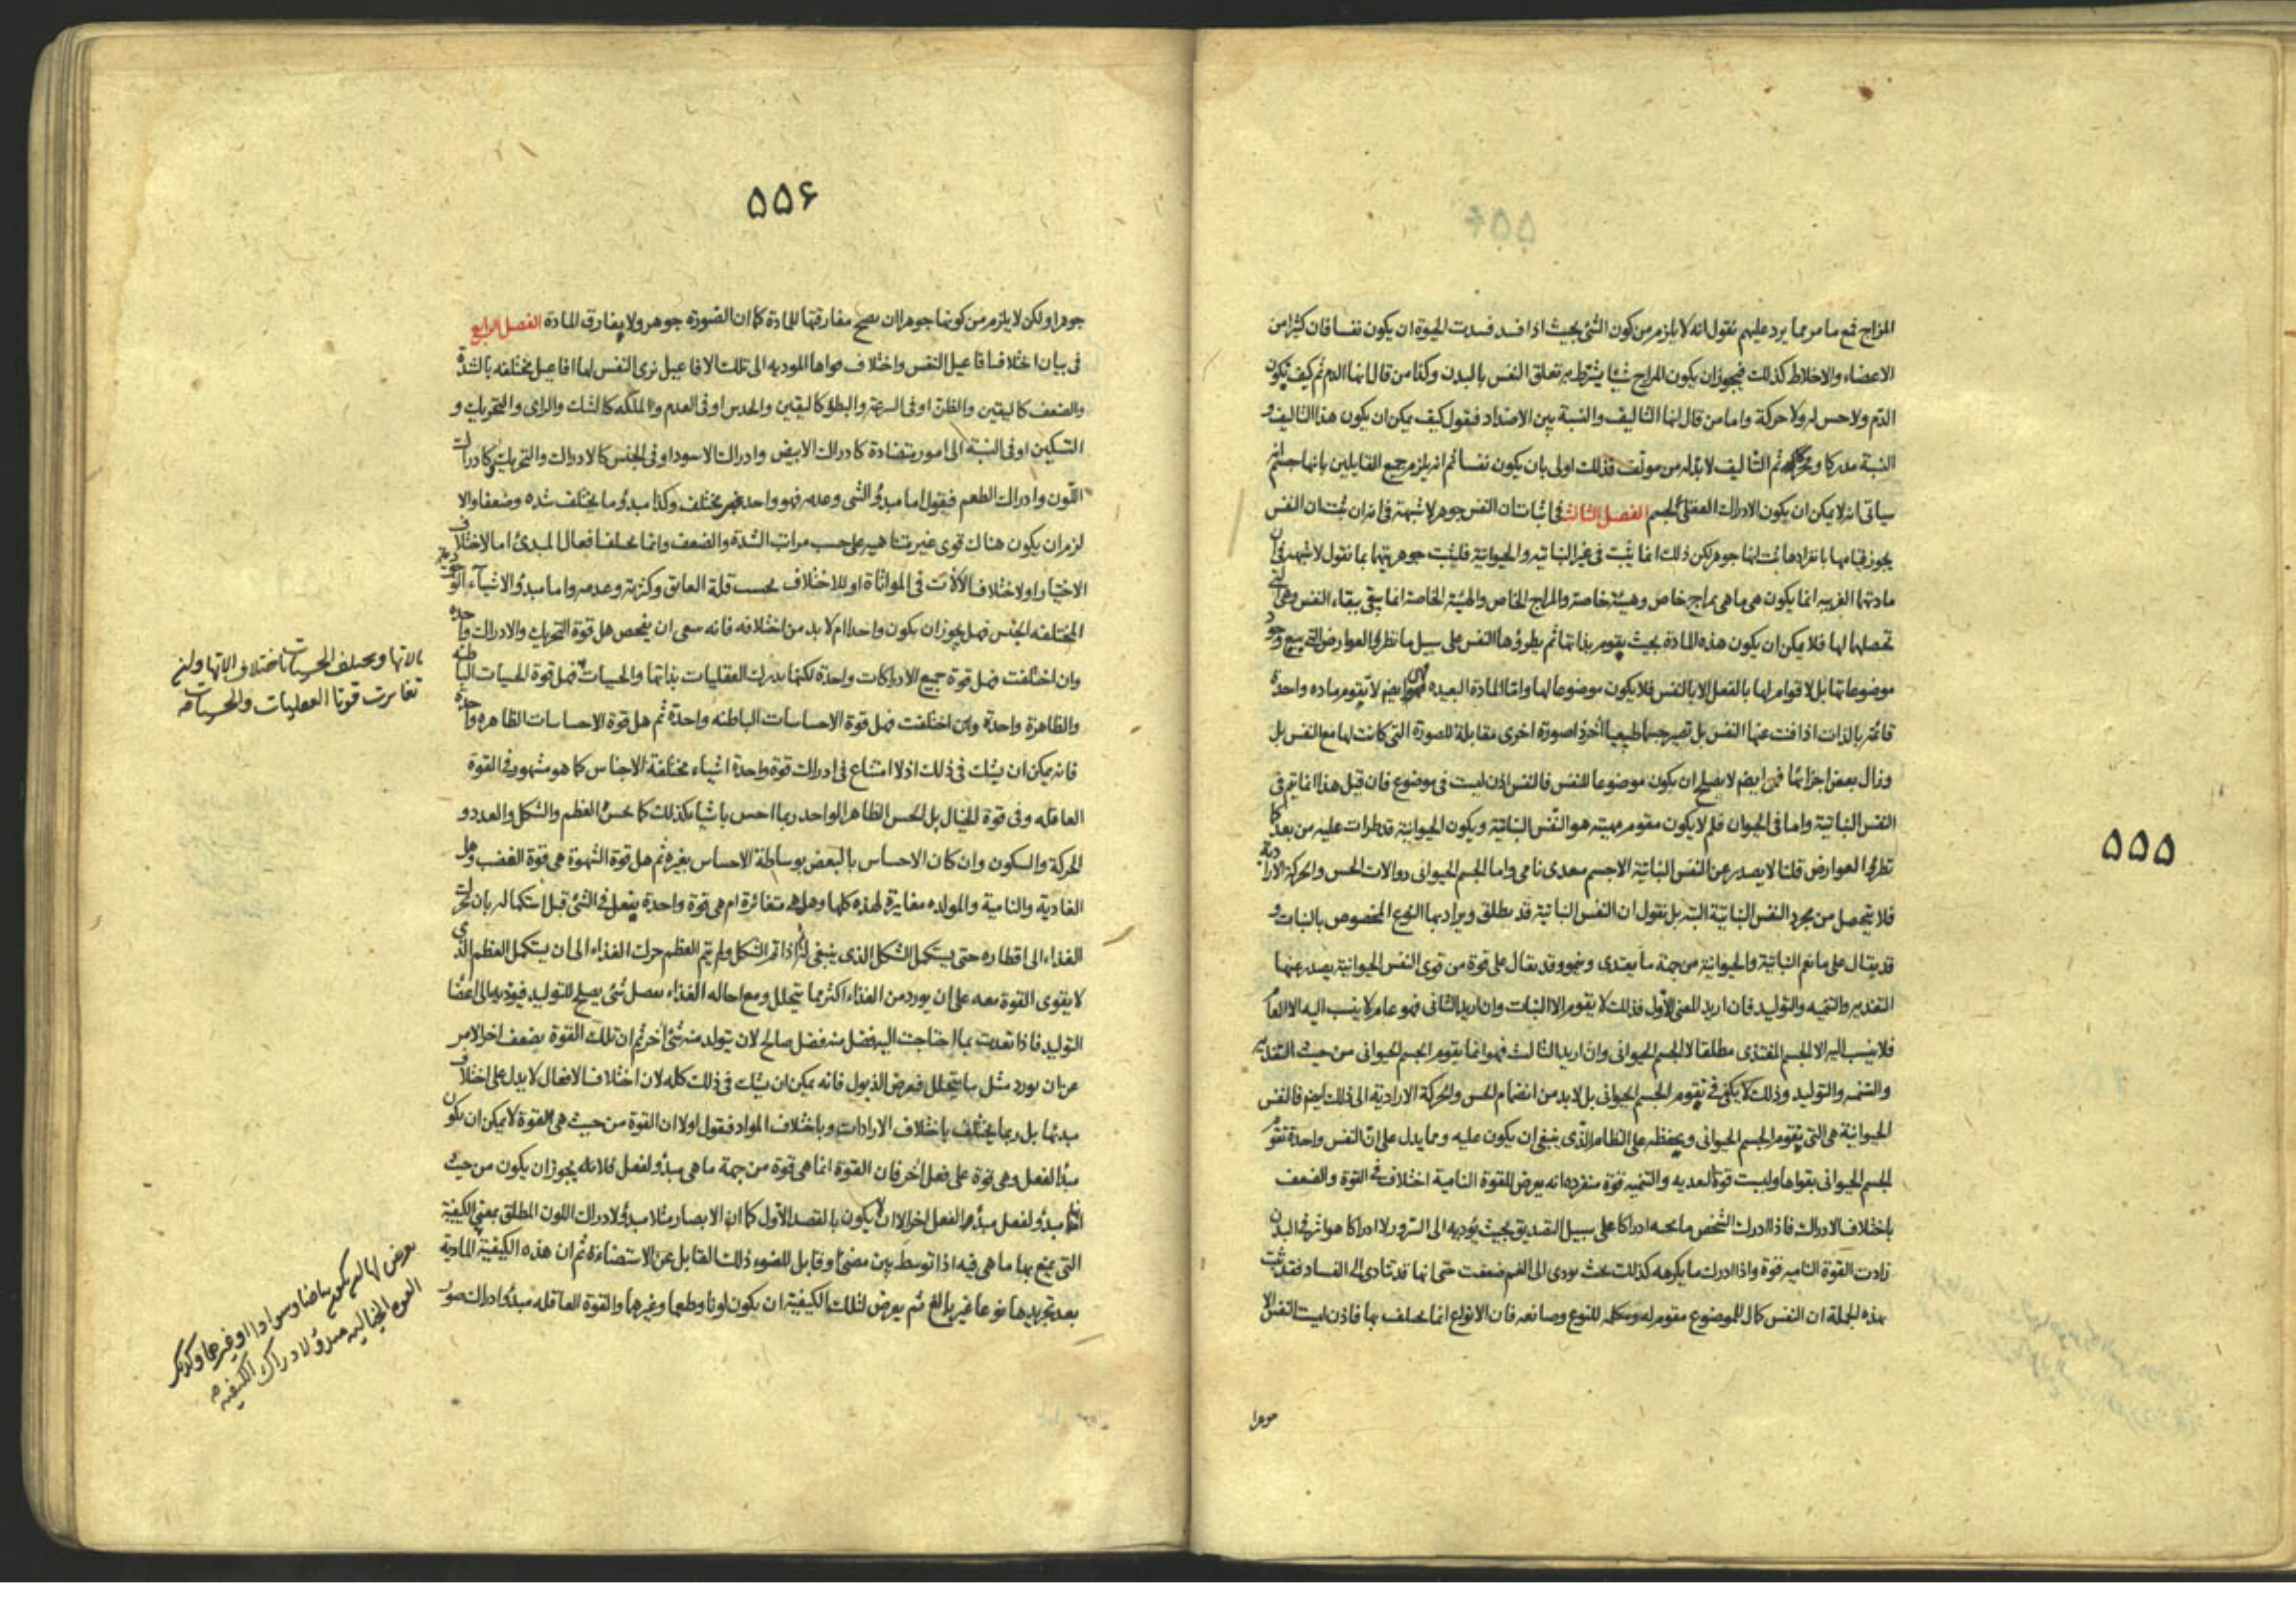 ۵۵۵
المزاج فمع ما مر مما يرد عليهم نقول انه لا يلزم من كون الشئ بحيث اذا فسد فسدت الحيوة ان يكون نفسا فان كثيرا من
الاعضاء والاخلاط كذلك فيجوز ان يكون المزاج شيئا يشترط به تعلق النفس بالبدن وكذا من قال انها الدم ثم كيف يكون
الدم ولا حس له ولا حركة واما من قال انها التاليف والنسبة بين الاضداد فيقول كيف يمكن ان يكون هذا التاليف و
النسبة مدركا ومحركا ثم التاليف لا بد له من مولف فذلك اولى بان يكون نفسا ثم انه يلزم جميع القايلين بانها جسم انه
سياتى انه لا يمكن ان يكون الادراك العقلى لجسم الفصل الثالث فى اثبات ان النفس جوهر لا شبهة فى انه ان ثبت ان النفس
يجوز قيامها بانفرادها ثبت انها جوهر لكن ذلك انما يثبت فى غير النباتيه والحيوانية فليثبت جوهريتهما بما نقول لا شبهة فى ان
مادتها القريبه انما يكون هى ما هى بمزاج خاص وهيئة خاصة والمزاج الخاص والهيئة الخاصة انما يبقى ببقاء النفس وهى التى
تحصلها لها فلا يمكن ان يكون هذه المادة بحيث يقوم بذاتها ثم يطرؤها النفس على سبيل ما تطرئ العوارض التى يتبع وجود
موضوعاتها بل لا قوام لها بالفعل الا بالنفس فلا يكون موضوعا لها واما المادة البعيده فهى ايضم لا يتقوم ماده واحدة
قائمة بالذات اذا فنت عنها النفس بل تصير جسما طبيعيا اخر ذا صورة اخرى مقابلة للصورة التى كانت لها مع النفس بل
وزال بعض اجزائها فهى ايضم لا يصلح ان يكون موضوعا للنفس فالنفس اذن ليست فى موضوع فان قيل هذا انما يتم فى
النفس النباتية واما فى الحيوان فلم لا يكون مقوم مهيته هو النفس النباتية ويكون الحيوانية قد طرات عليه من بعد كا
تطرئ العوارض قلنا لا يصدر عن النفس النباتية الا جسم معدى نامى واما الجسم الحيوانى ذو الات الحس والحركة الارادية
فلا يتحصل من مجرد النفس النباتية البته بل نقول ان النفس النباتية قد يطلق ويراد بها النوع المخصوص بالنبات و
قد يقال على ما نعم النباتية والحيوانية من جهة ما يعتدى وينمو وقد يقال على قوة من قوى النفس الحيوانية يصدر عنها
التغديه والتنميه والتوليد فان اريد المعنى الاول فذلك لا يقوم الا النبات وان اريد الثانى فهو عام لا ينسب اليه الا العام
فلا ينسب اليه الا الجسم المغتذى مطلقا لا الجسم الحيوانى وان اريد الثالث فهو انما يقوم الجسم الحيوانى من حيث التغديه
والتنميه والتوليد وذلك لا يكفى فى تقوم الجسم الحيوانى بل لا بد من انضمام الحس والحركة الارادية الى ذلك ايضم فالنفس
الحيوانية هى التى يقوم الجسم الحيوانى ويحفظه على النظام الذى ينبغى ان يكون عليه ومما يدل على ان النفس واحدة تقوم
الجسم الحيوانى بقواها وليست قوة التغديه والتنميه قوة منفرده انه يعرض للقوة النامية اختلاف فى القوة والضعف
باختلاف الادراك فاذا ادرك الشخص ما يحبه ادراكا على سبيل التصديق بحيث يؤديه الى السرور لا ادراكا هو اثر فى البدن
زادت القوة الناميه قوة واذا ادرك ما يكرهه كذلك بحيث يودى الى الغم ضعفت حتى انها قد تتادى الى الفساد فقد ثبت
بهذه الجملة ان النفس كمال للموضوع مقومه له ومكمله للنوع وصانعه فان الانواع انما يختلف بها فاذن ليست النفس الا
جوهرا
۵۵۶
جوهرا ولكن لا يلزم من كونها جوهرا ان يصح مفارقتها للمادة كما ان الصورة جوهر ولا يفارق المادة الفصل الرابع
فى بيان اختلاف افاعيل النفس واختلاف قواها المودية الى تلك الافاعيل نرى النفس لها افاعيل مختلفه بالشدة
والضعف كاليقين والظن او فى السرعة والبطؤ كاليقين والحدس او فى العدم والملكه كالشك والراى والتحريك و
التسكين او فى النسبة الى امور متضادة كادراك الابيض وادراك الاسود او فى الجنس كالادراك والتحريك وكادراك
اللون وادراك الطعم فيقول اما مبدؤ الشى وعدمه فهو واحد غير مختلف وكذا مبدؤ ما يختلف شده وضعفا والا
لزم ان يكون هناك قوى غير متناهيه على حسب مراتب الشدة والضعف وانما يختلف افعال المبدئ اما لاختلاف
الاختيار او لاختلاف الالات فى المواتاة او للاختلاف بحسب قلة العائق وكثرته وعدمه واما مبدؤ الاشياء
المختلفه الجنس فهل يجوز ان يكون واحدا ام لا بد من اختلافه فانه ينبغى ان يفحص هل قوة التحريك والادراك واحدة
وان اختلفت فهل قوة جميع الادراكات واحدة لكنها يدرك العقليات بذاتها والحسيات فهل قوة الحسيات الباطنه
والظاهرة واحدة وان اختلفت فهل قوة الاحساسات الباطنه واحدة ثم هل قوة الاحساسات الظاهره واحدة
فانه يمكن ان يشك فى ذلك اذ لا امتناع فى ادراك قوة واحدة اشياء مختلفة الاجناس كما هو مشهور فى القوة
العاقله وفى قوة الخيال بل الحس الظاهر الواحد ربما احس باشياء كذلك كما يحس العظم والشكل والعدد و
الحركة والسكون وان كان الاحساس بالبعض بوساطة الاحساس بغيره ثم هل قوة الشهوة هى قوة الغضب وهل
الغادية والنامية والمولده مغايرة لهذه كلها وهل هى متغائرة ام هى قوة واحدة يفعل فى الشئ قبل استكماله بان تحرك
الغذاء الى اقطاره حتى يستكمل الشكل الذى ينبغى له اذا تم الشكل ولم يتم العظم حرك الغذاء الى ان يستكمل العظم الذى
لا يقوى القوة معه على ان يورد من الغذاء اكثر مما يتحلل ومع احاله الغذاء يفضل شئ يصلح للتوليد فيؤديه الى اعضا
التوليد فاذا تعدت بما احتاجت اليه فضل منه فضل صالح لان يتولد منه شئ اخر ثم ان تلك القوة يضعف اخر الامر
عن ان يورد مثل ما يتحلل فيعرض الذبول فانه يمكن ان يشك فى ذلك كله لان اختلاف الافعال لا يدل على اختلاف
مبدئها بل ربما يختلف باختلاف الارادات وباختلاف المواد فنقول اولا ان القوة من حيث هى القوة لا يمكن ان يكون
مبدأ لفعل وهى قوة على فعل اخر فان القوة انما هى قوة من جهة ما هى مبدؤ لفعل فلانه يجوز ان يكون من حيث
انها مبدؤ لفعل مبدؤ لفعل اخر الا ان لا يكون بالقصد الاول كما ان الابصار مثلا مبدؤ لادراك اللون المطلق بمعنى الكيفية
التى يمنع بها ما هى فيه اذا توسط بين مضئ وقابل للضوء ذلك القابل عن الاستضاءة ثم ان هذه الكيفية المادية
بعد تجريدها نوعا غير بالغ ثم يعرض لتلك الكيفية ان يكون لونا وطعما وغيرها والقوة العاقله مبدؤ ادراك صور
بالاتها ويختلف الحسيات باختلاف الاتها ولئن
تغايرت قوتا العقليات والحسيات
يعرض لها ان يكون بياضا وسوادا او غيرهما وكذلك
القوه الخياليه مبدؤ لادراك الكيفيه